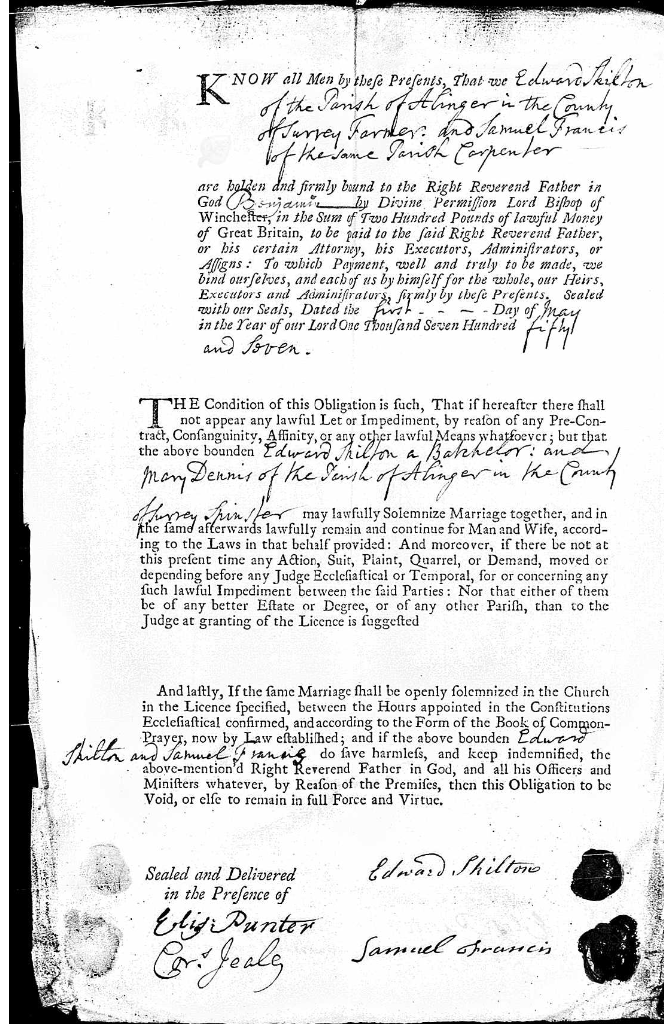 KNOW all Men by theſe Preſents, That we Edward Skilton
of the Parish of Abinger in the County
of Surrey Farmer: and Samuel Francis
of the same Parish Carpenter
are holden and firmly bound to the Right Reverend Father in
God Benjamin by Divine Permiſſion Lord Biſhop of
Wincheſter, in the Sum of Two Hundred Pounds of lawful Money
of Great Britain, to be paid to the ſaid Right Reverend Father,
or his certain Attorney, his Executors, Adminiſtrators, or
Aſſigns: To which Payment, well and truly to be made, we
bind ourſelves, and each of us by himſelf for the whole, our Heirs,
Executors and Adminiſtrators, firmly by theſe Preſents. Sealed
with our Seals, Dated the first - - - - Day of May
in the Year of our Lord One Thouſand Seven Hundred fifty
and Seven.
THE Condition of this Obligation is ſuch, That if hereafter there ſhall
not appear any lawful Let or Impediment, by reaſon of any Pre-Con-
tract, Conſanguinity, Affinity, or any other lawful Means whatſoever; but that
the above bounden Edward Skilton a Batchelor: and
Mary Dennis of the Parish of Abinger in the County
of Surrey Spinster may lawfully Solemnize Marriage together, and in
the ſame afterwards lawfully remain and continue for Man and Wife, accord-
ing to the Laws in that behalf provided: And moreover, if there be not at
this preſent time any Action, Suit, Plaint, Quarrel, or Demand, moved or
depending before any Judge Eccleſiaſtical or Temporal, for or concerning any
ſuch lawful Impediment between the ſaid Parties: Nor that either of them
be of any better Eſtate or Degree, or of any other Pariſh, than to the
Judge at granting of the Licence is ſuggeſted
And laſtly, If the ſame Marriage ſhall be openly ſolemnized in the Church
in the Licence ſpecified, between the Hours appointed in the Conſtitutions
Eccleſiaſtical confirmed, and according to the Form of the Book of Common-
Prayer, now by Law eſtabliſhed; and if the above bounden Edward
Skilton and Samuel Francis do ſave harmleſs, and keep indemnified, the
above-mention'd Right Reverend Father in God, and all his Officers and
Miniſters whatever, by Reaſon of the Premiſes, then this Obligation to be
Void, or elſe to remain in full Force and Virtue.
Sealed and Delivered
in the Preſence of
Edward Skilton
Eliz: Punter
Samuel Francis
Cor.s Jeale